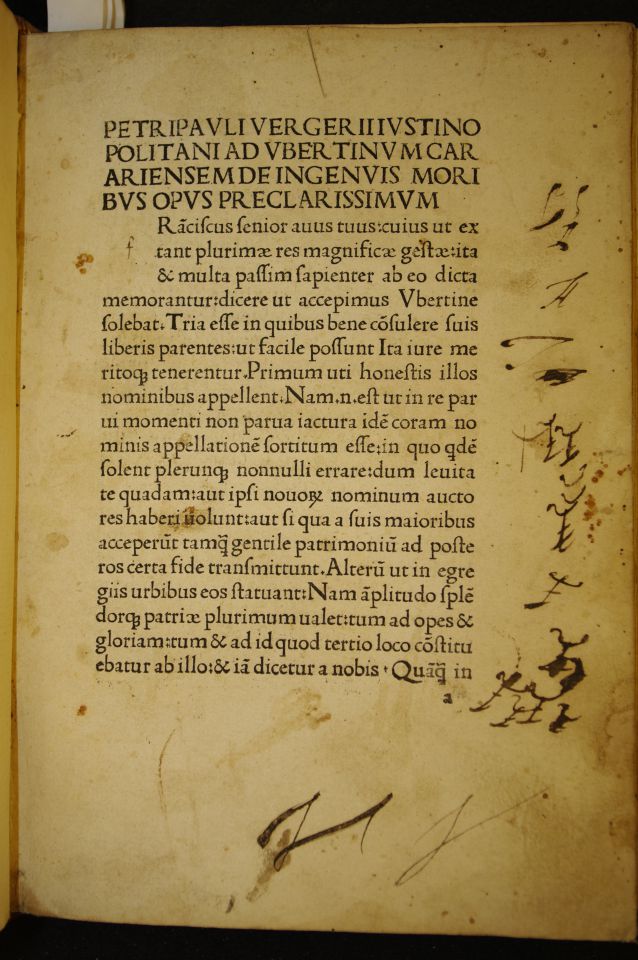 PETRI PAVLI VERGERII IVSTINO
POLITANI AD VBERTINVM CAR
ARIENSEM DE INGENVIS MORI
BVS OPVS PRECLARISSIMVM
Rāciscus senior auus tuus:cuius ut ex
f tant plurimæ res magnificæ gestæ:ita
& multa passim sapienter ab eo dicta
memorantur:dicere ut accepimus Vbertine
solebat.Tria esse in quibus bene cōsulere suis
liberis parentes:ut facile possunt Ita iure me
ritoqꝫ tenerentur.Primum uti honestis illos
nominibus appellent.Nam.n.est ut in re par
ui momenti non parua iactura idē coram no
minis appellationē sortitum esse:in quo qdē
solent plerunqꝫ nonnulli errare:dum leuita
te quadam:aut ipsi nouoꝝ nominum aucto
res haberi uolunt:aut si qua a suis maioribus
acceperūt tamq̄ gentile patrimoniū ad poste
ros certa fide transmittunt.Alterū ut in egre
giis urbibus eos statuant:Nam āplitudo splē
dorqꝫ patriæ plurimum ualet:tum ad opes &
gloriam:tum & ad id quod tertio loco cōstitu
ebatur ab illo:& iā dicetur a nobis.Quāq̄ in
a